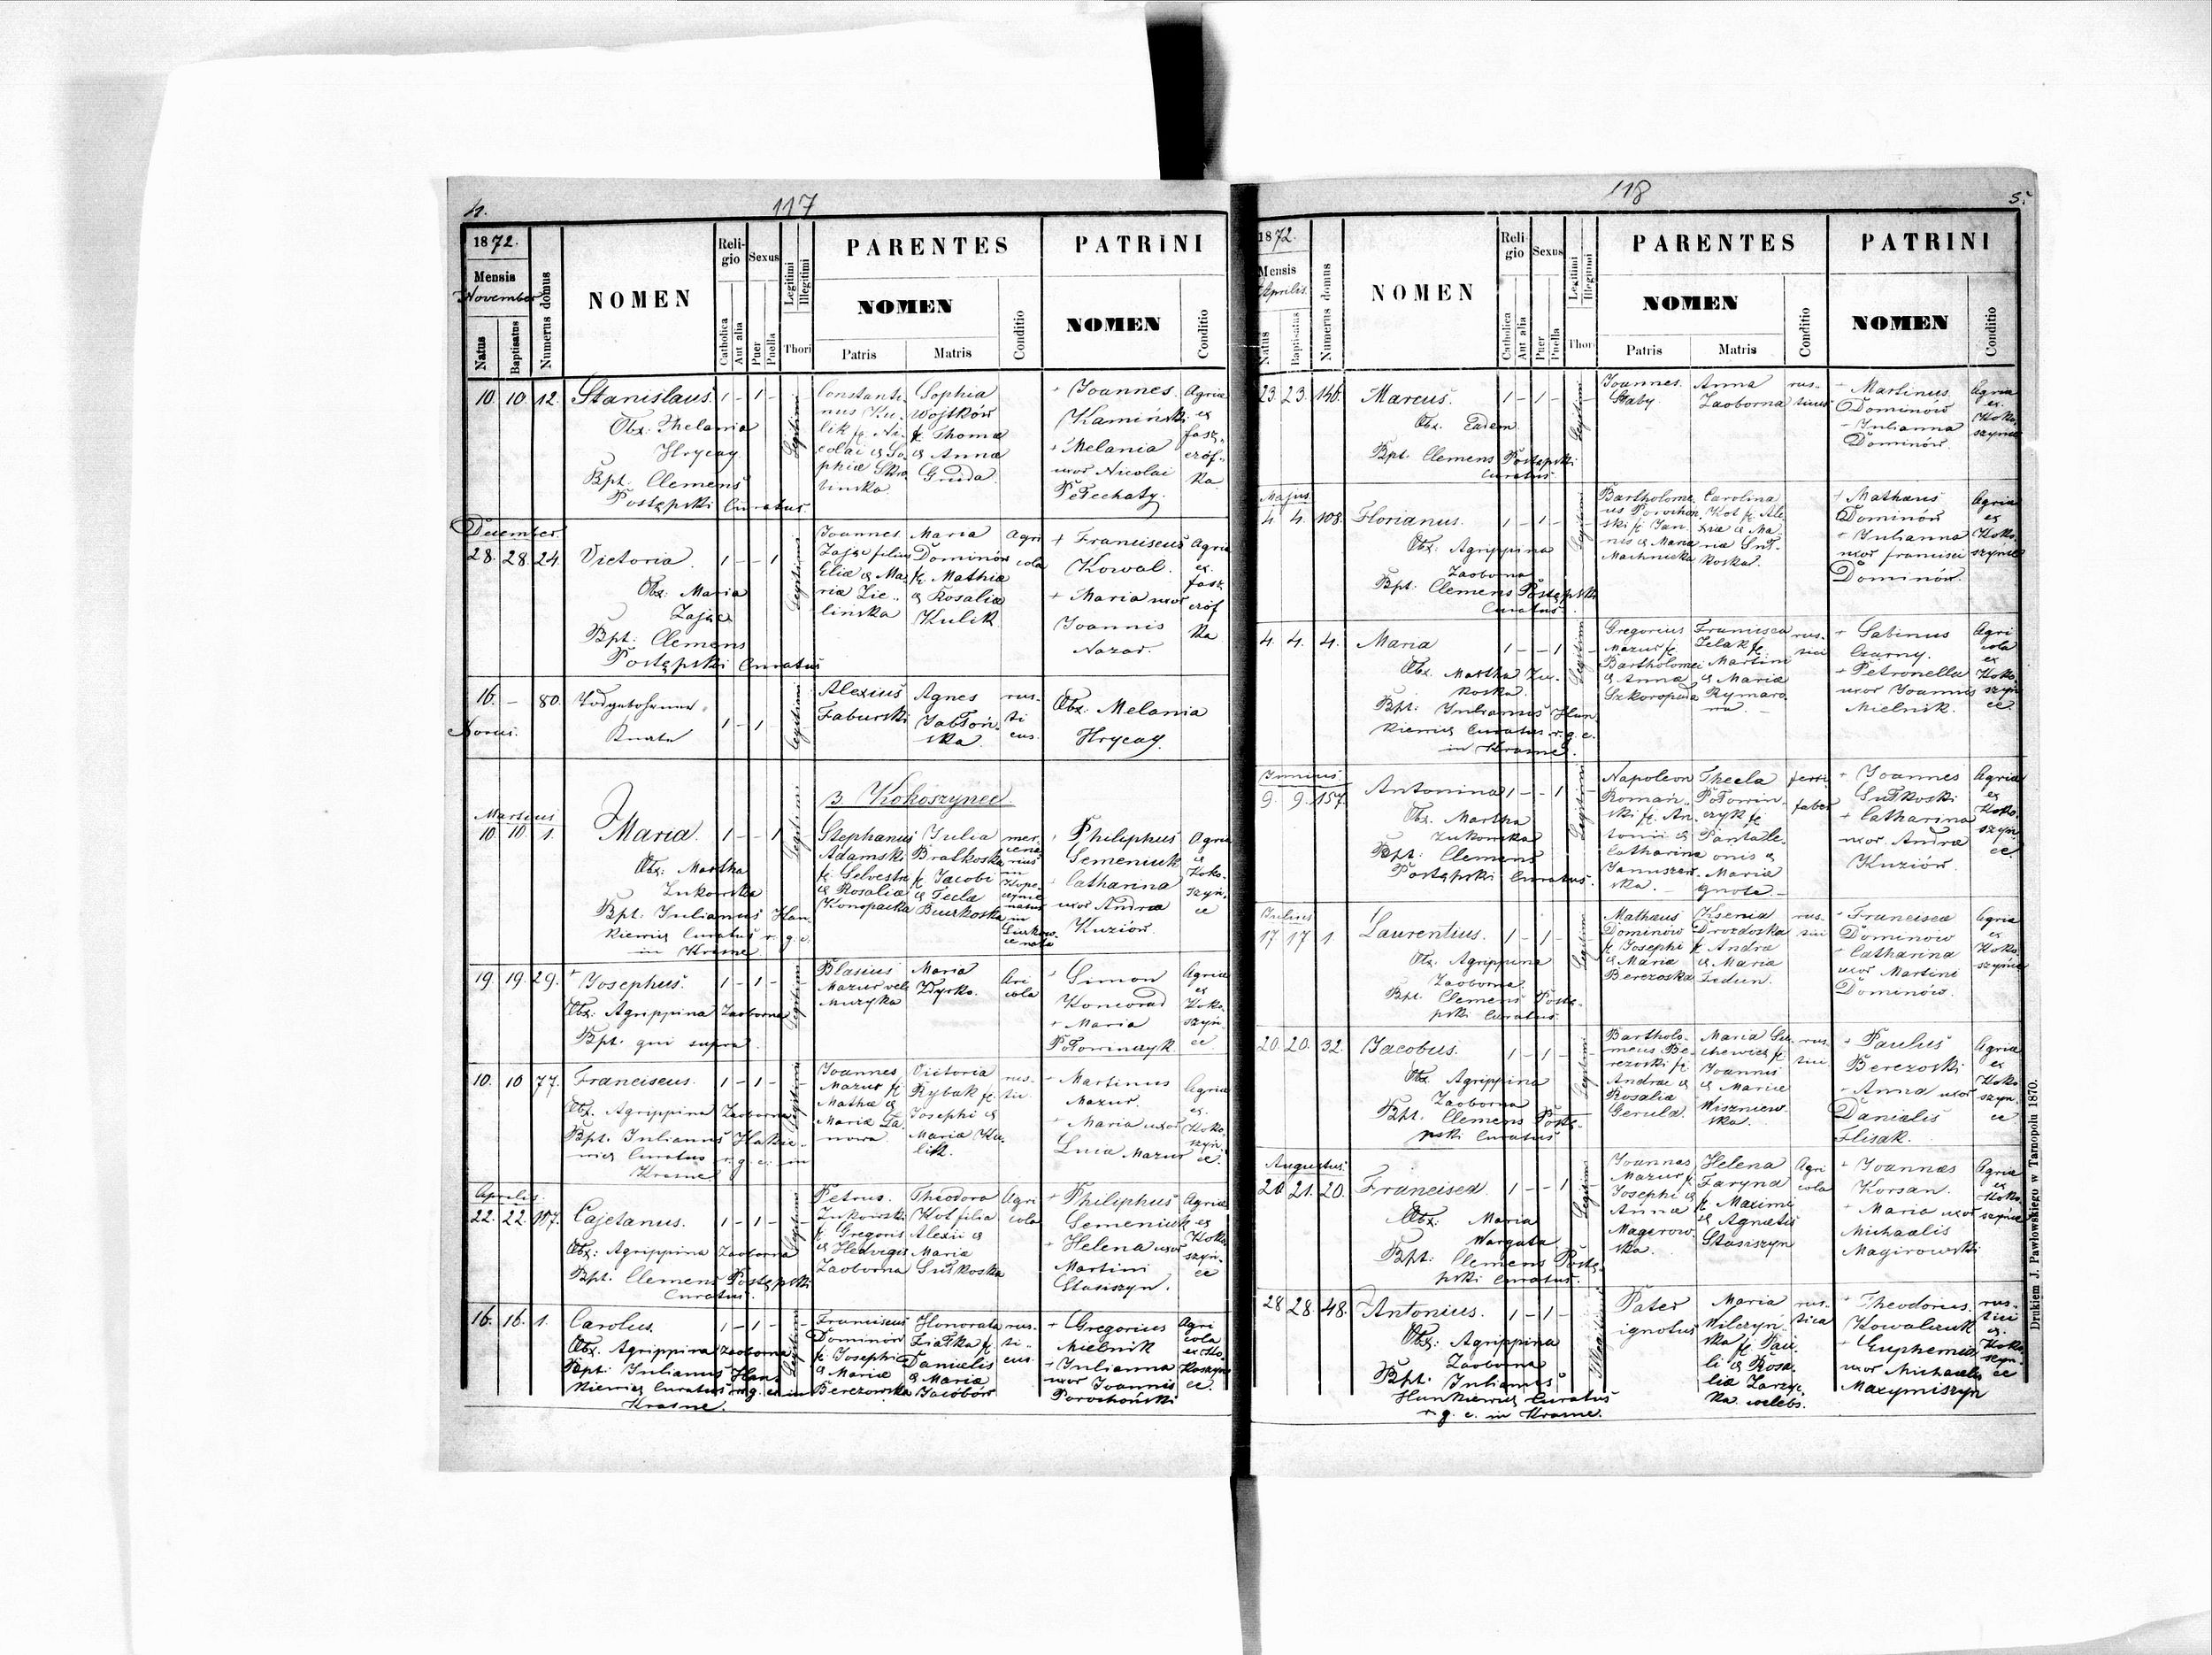 4.
117
1872.
Mensis
November
Natus
Baptisatus
Numerus domus
NOMEN
Religio
Catholica
Aut alia
Sexus
Puer
Puella
Legitimi
Illegitimi
Thori
PARENTES
NOMEN
Patris
Matris
Conditio
PATRINI
NOMEN
Conditio
10. 10 12. Stanislaus. 1 - 1 -
Obx. Melania
Hrycay.
Bpt. Clemens
Postępski Curatus.
Legitimi
Constanti-
nus Ku-
lik f. Ni-
colai & So-
phiæ
Sophia
Wojtków
f. Thomæ
& Annæ
Gruda.
+ Joannes
Kamiński
+ Melania
uxor Nicolai
Pełechaty.
Agricæ
ex
fasz-
czöf-
ka.
December.
28. 28. 24. Victoria. 1 - - 1
Obx: Maria
Zając
Bpt: Clemens
Postępski Curatus
Legitimi
Joannes
Zając filius
Eliæ & Ma-
riæ Zie-
lińska
Maria
Dominów
f. Mathiæ
& Rosaliæ
Kulik
Agri
cola
+ Franciscus
Kowal.
+ Maria uxor
Joannis
Nazar.
Agricæ
ex
fasz
czöf
ka
16. - 80.
1 - 1
Legitimi
Alexius
Faburski
Agnes
Jabłoń-
ska.
rus-
ti
cus.
Obx: Melania
Hrycay.
3. Kokoszyńce.
Martius
10. 10. 1. Maria. 1 - - 1
Obx: Martha
Zukowska
Bpt: Julianus Hun-
kiewicz Curatus r. g. c.
in Krasne
Legitimi
Stephanus
Adamski
f. Selvestri
& Rosaliæ
Konopacka
Julia
Bratkoska
f. Jacobi
& Teclæ
Buczkoska
mer-
cena
rius
in
natus
in
+ Philiphus
Semeniuk
+ Catharina
uxor Andreæ
Kuziów.
Agricæ
ex
Koko-
szyń-
ce
19. 19. 29. + Josephus. 1 - 1 -
Obx: Agrippina Zaoborna
Bpt. qui supra.
Legitimi
Blasius
Mazur vel
Muzyka
Maria
Dyrko.
Agri
cola
+ Simon
Koncorad
+ Maria
Połowinczyk
Agricæ
ex
Koko-
szyń
ce.
10. 10 77. Franciscus. 1 - 1 -
Obx. Agrippina Zaoborna
Bpt. Julianus Hakie-
wicz Curatus r. g. c. in
Krasne
Legitimi
Joannes
Mazur f.
Mathæ &
Mariæ Ła-
nowa
Victoria
Rybak f.
Josephi &
Mariæ Ku-
lik.
rus-
tic.
+ Martinus
Mazur.
+ Maria uxor
Lucæ Mazur
Agricæ
ex.
Koko-
szyń-
ce.
Aprilis.
22. 22. 107. Cajetanus. 1 - 1 -
Obx: Agrippina Zaoborna
Bpt. Clemens Postępski
Curatus.
Legitimi
Petrus.
Zukowski
f. Gregoris
& Hedvigis
Zaoborna
Theodora
Kot filia
Alexii &
Maria
Sułkoska
Agri
cola
+ Philiphus
Semeniuk
+ Helena uxor
Martini
Stasiszyn.
Agricæ
ex
Koko-
szyń-
ce
16. 16. 1. Carolus. 1 - 1 -
Obx. Agrippina Zaoborna
Bpt: Julianus Hun-
kiewicz Curatus r. g. c. in
Krasne.
Legitimi
Franciscus
Dominów
f. Josephi
& Mariæ
Berezowska
Honorata
Ziałka f.
Danielis
& Mariæ
Jacóbów
rus-
ti-
cus.
+ Gregorius
Mielnik
+ Julianna
uxor Joannis
Porochoński
Agri
cola
ex Ko-
koszyń-
ce.
118
5.
1872.
Mensis
Aprilis.
Natus
Baptisatus
Numerus domus
NOMEN
Religio
Catholica
Aut alia
Sexus
Puer
Puella
Legitimi
Illegitimi
Thori
PARENTES
NOMEN
Patris
Matris
Conditio
PATRINI
NOMEN
Conditio
23. 23. 146. Marcus. 1 - 1 -
Obx. Eadem.
Bpt. Clemens Postępski
Curatus.
Legitimi
Joannes.
Słaby
Anna
Zaoborna
rus-
ticus
+ Martinus
Dominów
+ Julianna
Dominów.
Agricæ
ex.
Koko
szyńce
Majus.
4. 4. 108. Florianus. 1 - 1 -
Obx: Agrippina
Zaoborna
Bpt: Clemens Postępski
Curatus.
Legitimi
Bartholome-
us Porochoń-
ski f. Jan-
nis & Mariæ
Machnicka
Carolina
Kot f. Ale-
xiæ & Ma-
riæ Suł-
koska.
+ Mathæus
Dominów
+ Julianna
uxor francisci
Dominów.
Agricæ
ex
Koko-
szyńce
4. 4. 4. Maria 1 - - 1
Obx. Martha Zu-
koska.
Bpt: Julianus Hun-
kiewicz Curatus r. g. c.
in Krasne.
Legitimi
Gregorius
Mazur f.
Bartholomei
& Annæ
Szkoropada
Francisca
Zelak f.
Martini
& Mariæ
Rymaro
wa.
rus-
tici
+ Sabinus
Czarny.
+ Petronella
uxor Joannis
Mielnik.
Agri
cola
ex
Koko-
szyń
ce.
Junius.
9. 9. 157. Antonina 1 - - 1
Obx. Martha
Zukowska
Bpt: Clemens
Postępski Curatus.
Legitimi
Napoleon
Romań-
ski f. An-
tonii &
Catharinæ
Januszew-
ska.
Thecla
Połowin-
czyk f.
Pantale-
onis &
Mariæ
ignota
ferri
faber
+ Joannes
Sułkoski
+ Catharina
uxor Andreæ
Kuziów.
Agricæ
ex
Koko-
szyń-
ce.
Julius
17 17 1. Laurentius. 1 - 1 -
Obx. Agrippina
Zaoborna.
Bpt. Clemens Postę-
pski Curatus.
Legitimi
Mathæus
Dominów
f. Josephi
& Mariæ
Berezoska
Ksenia
Drozdoska
f. Andreæ
& Mariæ
Fedun.
rus-
tici
+ Franciscæ
Dominów
+ Catharina
uxor Martini
Dominów.
Agricæ
ex
Koko-
szyńce
20. 20. 32. Jacobus. 1 - 1 -
Obx Agrippina
Zaoborna
Bpt. Clemens Postę-
pski Curatus
Legitimi
Bartholo-
meus Be-
rezoski f.
Andreæ &
Rosaliæ
Gerula.
Maria
f.
Joannis
& Mariæ
Wiszniew-
ska.
rus
tici
+ Paulus
Berezoski
+ Anna uxor
Danielis
Flisak.
Agricæ
ex
Koko-
szyń.
ce
Augustus.
20. 21. 20. Francisca. 1 - - 1
Obx: Maria
Wargata
Bpt: Clemens Postę-
pski Curatus.
Legitimi
Joannes
Mazur f.
Josephi &
Annæ
Magerow-
ska.
Helena
Faryna
f. Maximi
& Agnetis
Stasiszyn
Agri
cola
+ Joannes
Korsan.
+ Maria uxor
Michaelis
Magirowski
Agricæ
ex
Koko-
szyńce
28 28. 48. Antonius. 1 - 1 -
Obx: Agrippina
Zaoborna
Bpt. Julianus
Hunkiewicz Curatus
r. g. c. in Krasne.
Illegitimi
Pater
ignotus
Maria
Wilczyn-
ska f. Pau-
li & Rosa-
liæ Zarzyc-
ka. cælebs.
rus-
tica
+ Theodorus
Kowalczuk
+ Euphemia
uxor Michaelis
Maxymiszyn
rus-
tici
ex.
Koko-
szyń-
ce
Drukiem J. Pawłowskiego w Tarnopolu 1870.